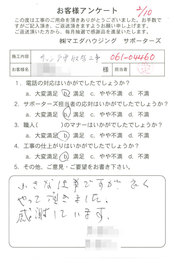 お客様アンケート
2/10
この度は工事のご用命を頂きありがとうございました。お手数で
すがご記入頂き、ご返送頂きますよう
お願い申し上げます。ご返送
頂いた方から、毎月抽選で感謝品を進呈いたします。
㈱マエダハウジング サポーターズ
施工内容
061-04460
お客様名
様
担当者
1. 電話の対応はいかがでしたでしょうか?
a. 大変満足 b. 満足 c. やや不満 d. 不満
2. サポーターズ担当者の応対はいかがでしたでしょうか?
a. 大変満足 b. 満足 c. やや不満 d. 不満
3. 職人( )のマナーはいかがでしたでしょうか?
a. 大変満足 b. 満足 c. やや不満 d. 不満
4. 工事の仕上がりはいかがでしたでしょうか?
a. 大変満足 b. 満足 c. やや不満 d. 不満
5. その他、ご意見・ご要望をお書き下さい。
小さな仕事ですが よく
やって頂きました。
感謝しています。